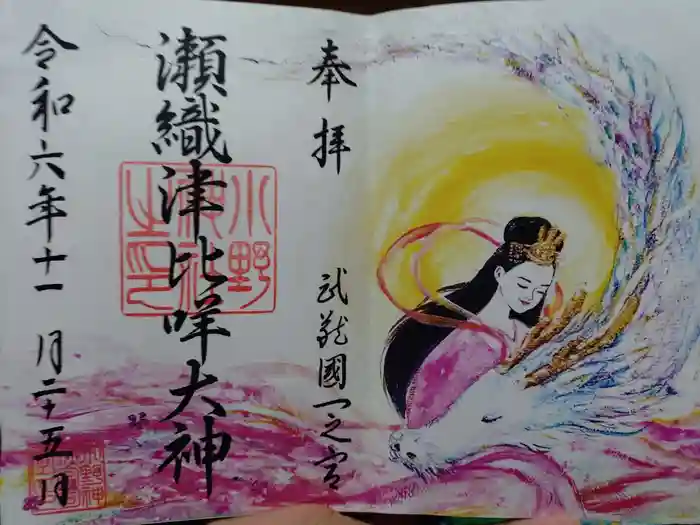 奉拝
武蔵國一之宮
瀬織津比咩大神
小野神社之印
令和六年十一月二十五日